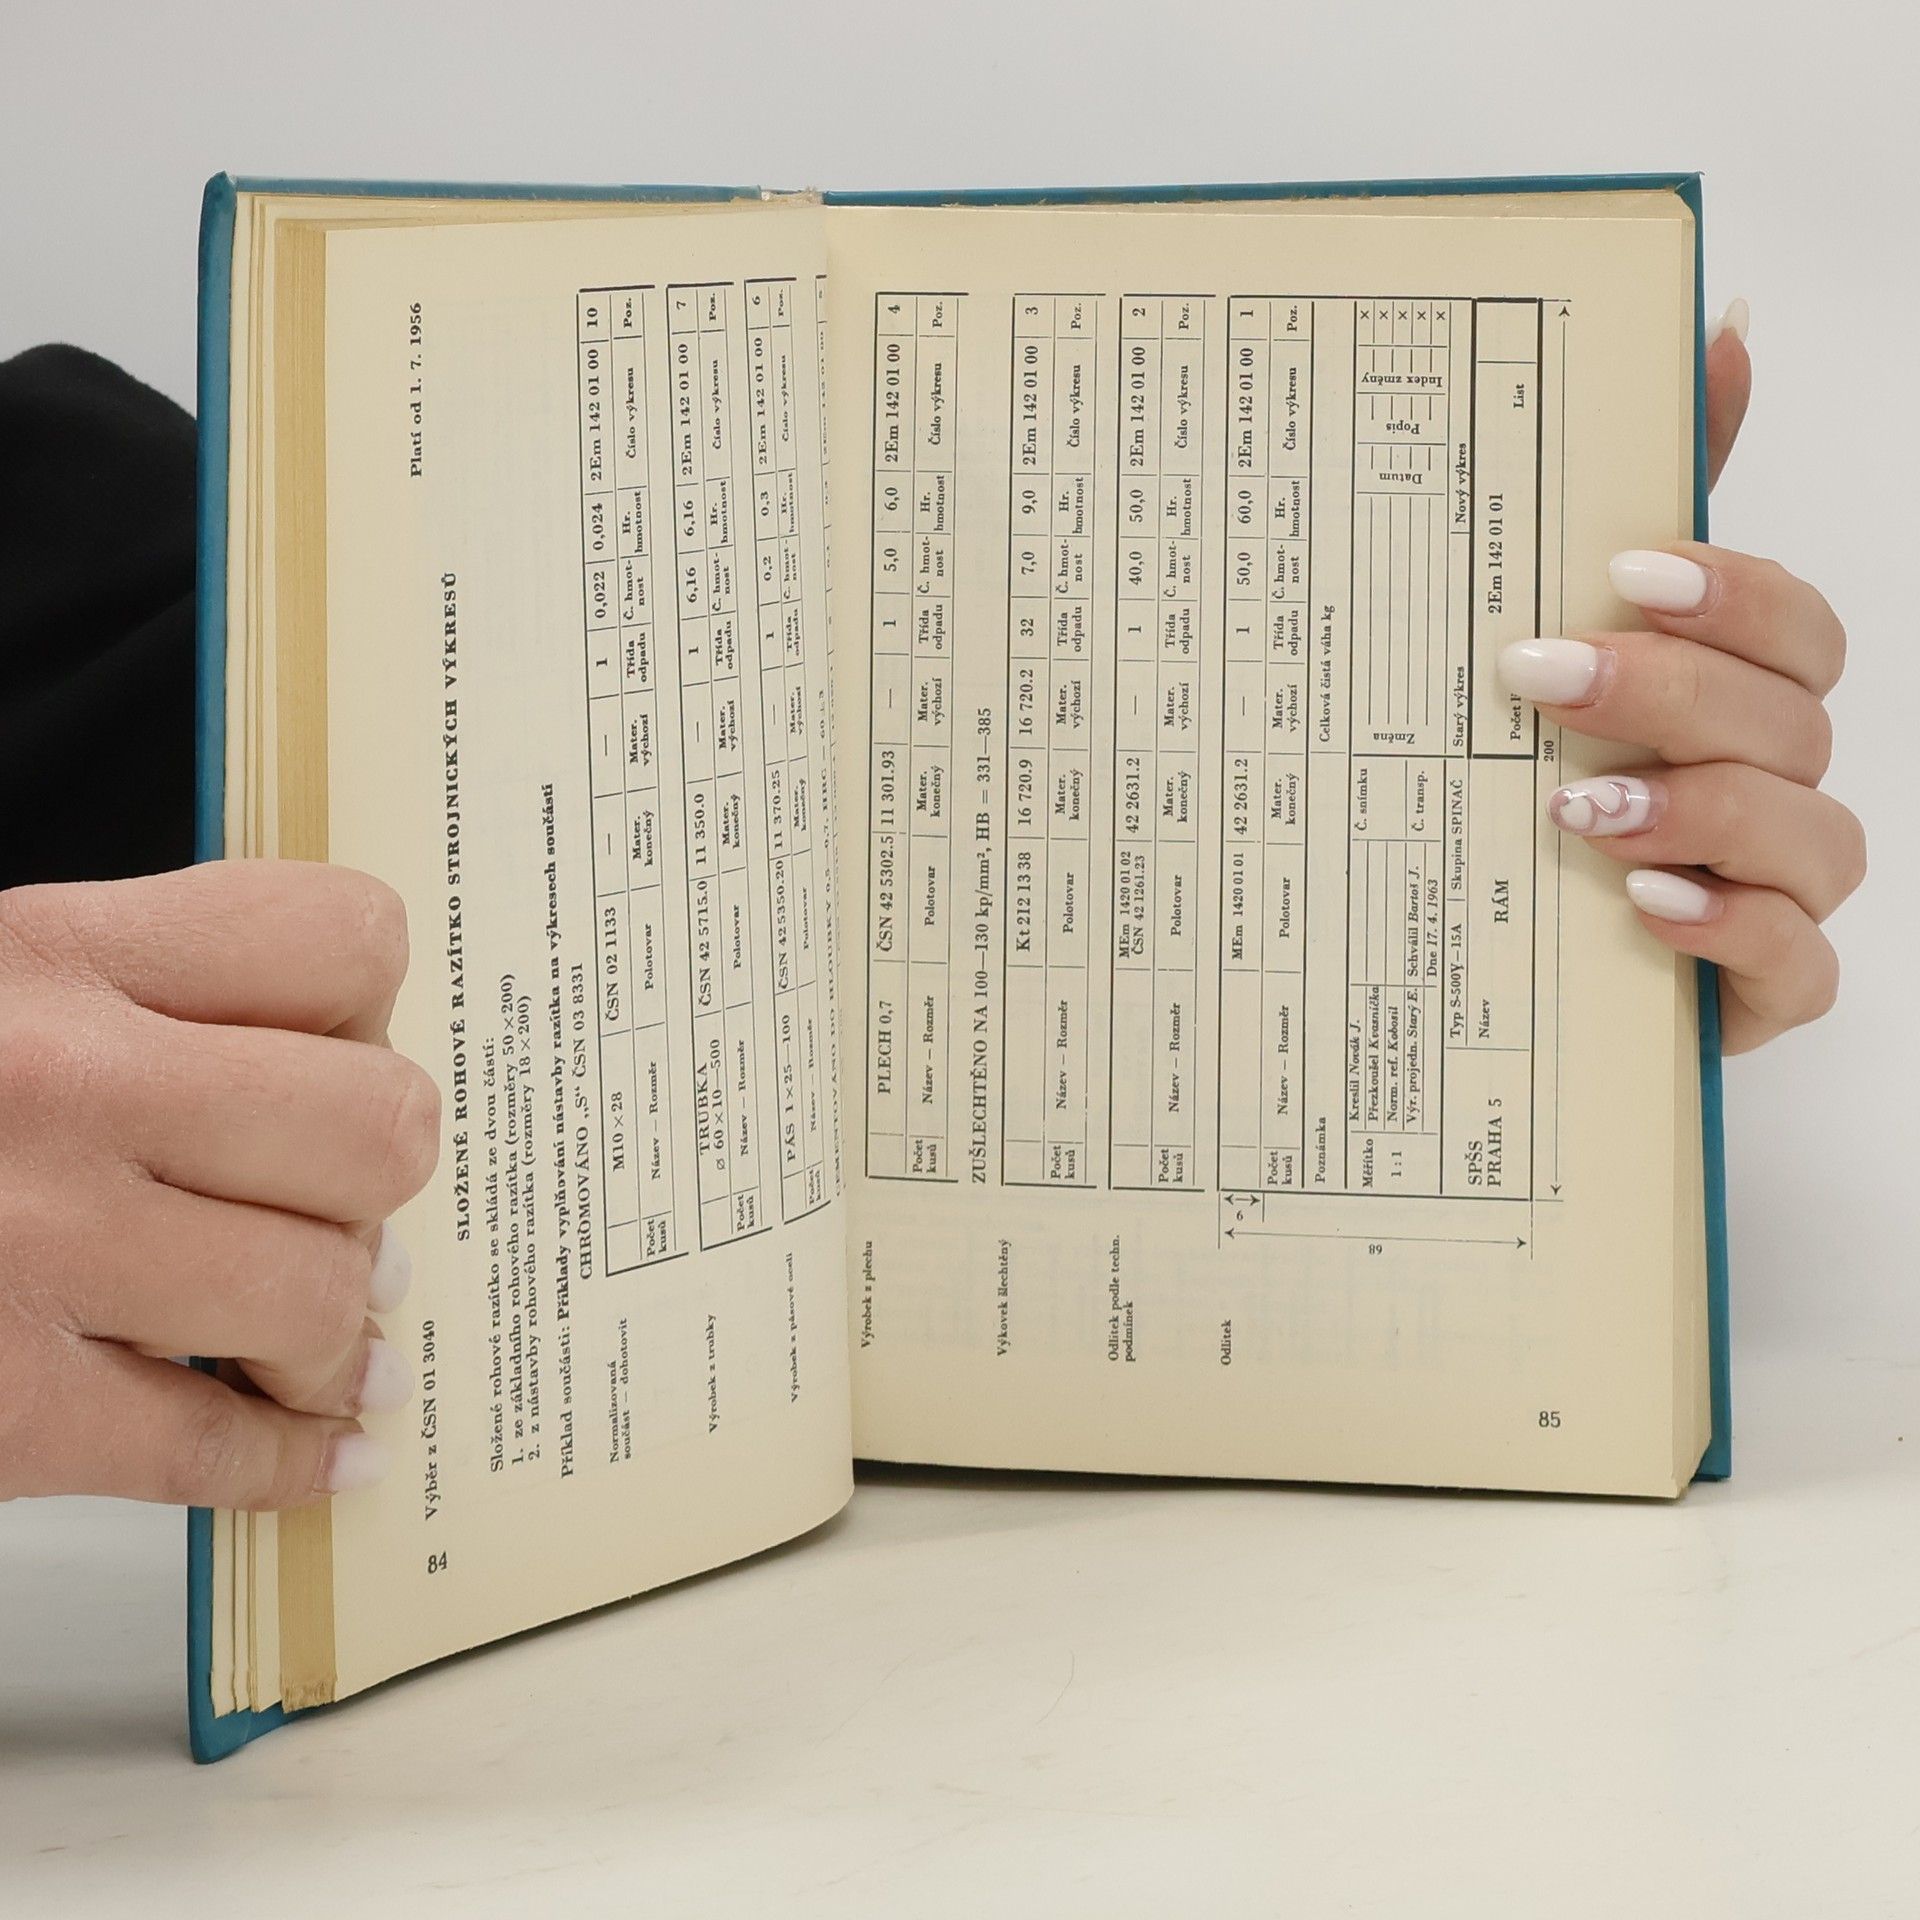 84
Výběr z ČSN 01 3040
Platí od 1. 7. 1956
SLOŽENÉ ROHOVÉ RAZÍTKO STROJNICKÝCH VÝKRESŮ
Složené rohové razítko se skládá ze dvou částí:
1. ze základního rohového razítka (rozměry 50 × 200)
2. z nástavby rohového razítka (rozměry 18 × 200)
Příklad součásti: Příklady vyplňování nástavby razítka na výkresech součástí
CHROMOVÁNO „S“ ČSN 03 8331
Normalizovaná
součást — dohotovit
M10 × 28 ČSN 02 1133 — — 1 0,022 0,024 2Em 142 01 00 10
Počet kusů Název — Rozměr Polotovar Mater. konečný Mater. výchozí Třída odpadu Č. hmot-nost Hr. hmotnost Číslo výkresu Poz.
Výrobek z trubky
TRUBKA
⌀ 60 × 10—500 ČSN 42 5715.0 11 350.0 — 1 6,16 6,16 2Em 142 01 00 7
Počet kusů Název — Rozměr Polotovar Mater. konečný Mater. výchozí Třída odpadu Č. hmot-nost Hr. hmotnost Číslo výkresu Poz.
Výrobek z pásové oceli
PÁS 1 × 25—100 ČSN 42 5350.20 11 370.25 — 1 0,2 0,3 2Em 142 01 00 6
Počet kusů Název — Rozměr Polotovar Mater. konečný Mater. výchozí Třída odpadu Č. hmot-nost Hr. hmotnost Číslo výkresu Poz.
CEMENTOVÁNO DO HLOUBKY 0,5—0,7, HRC = 60 ± 3
Výrobek z plechu
PLECH 0,7 ČSN 42 5302.5 11 301.93 — 1 5,0 6,0 2Em 142 01 00 4
Počet kusů Název — Rozměr Polotovar Mater. konečný Mater. výchozí Třída odpadu Č. hmot-nost Hr. hmotnost Číslo výkresu Poz.
ZUŠLECHTĚNO NA 100—130 kp/mm², HB = 331—385
Výkovek šlechtěný
Kt 212 13 38 16 720.9 16 720.2 32 7,0 9,0 2Em 142 01 00 3
Počet kusů Název — Rozměr Polotovar Mater. konečný Mater. výchozí Třída odpadu Č. hmot-nost Hr. hmotnost Číslo výkresu Poz.
Odlitek podle techn.
podmínek
MEm 1420 01 02
ČSN 42 1261.23 42 2631.2 — 1 40,0 50,0 2Em 142 01 00 2
Počet kusů Název — Rozměr Polotovar Mater. konečný Mater. výchozí Třída odpadu Č. hmot-nost Hr. hmotnost Číslo výkresu Poz.
Odlitek
MEm 1420 01 01 42 2631.2 — 1 50,0 60,0 2Em 142 01 00 1
Počet kusů Název — Rozměr Polotovar Mater. konečný Mater. výchozí Třída odpadu Č. hmot-nost Hr. hmotnost Číslo výkresu Poz.
Poznámka Celková čistá váha kg
Měřítko
1 : 1
Kreslil Novák J. Č. snímku
Přezkoušel Kvasnička
Norm. ref. Kobosil
Výr. projedn. Starý E. Schválil Bartoš J. Č. transp.
Dne 17. 4. 1963
Změna Datum Popis Index změny
×
×
×
×
×
Typ S-500V—15A Skupina SPINAČ Starý výkres Nový výkres
SPŠS
PRAHA 5
Název
RÁM
2Em 142 01 01
Počet List
200
9
68
85